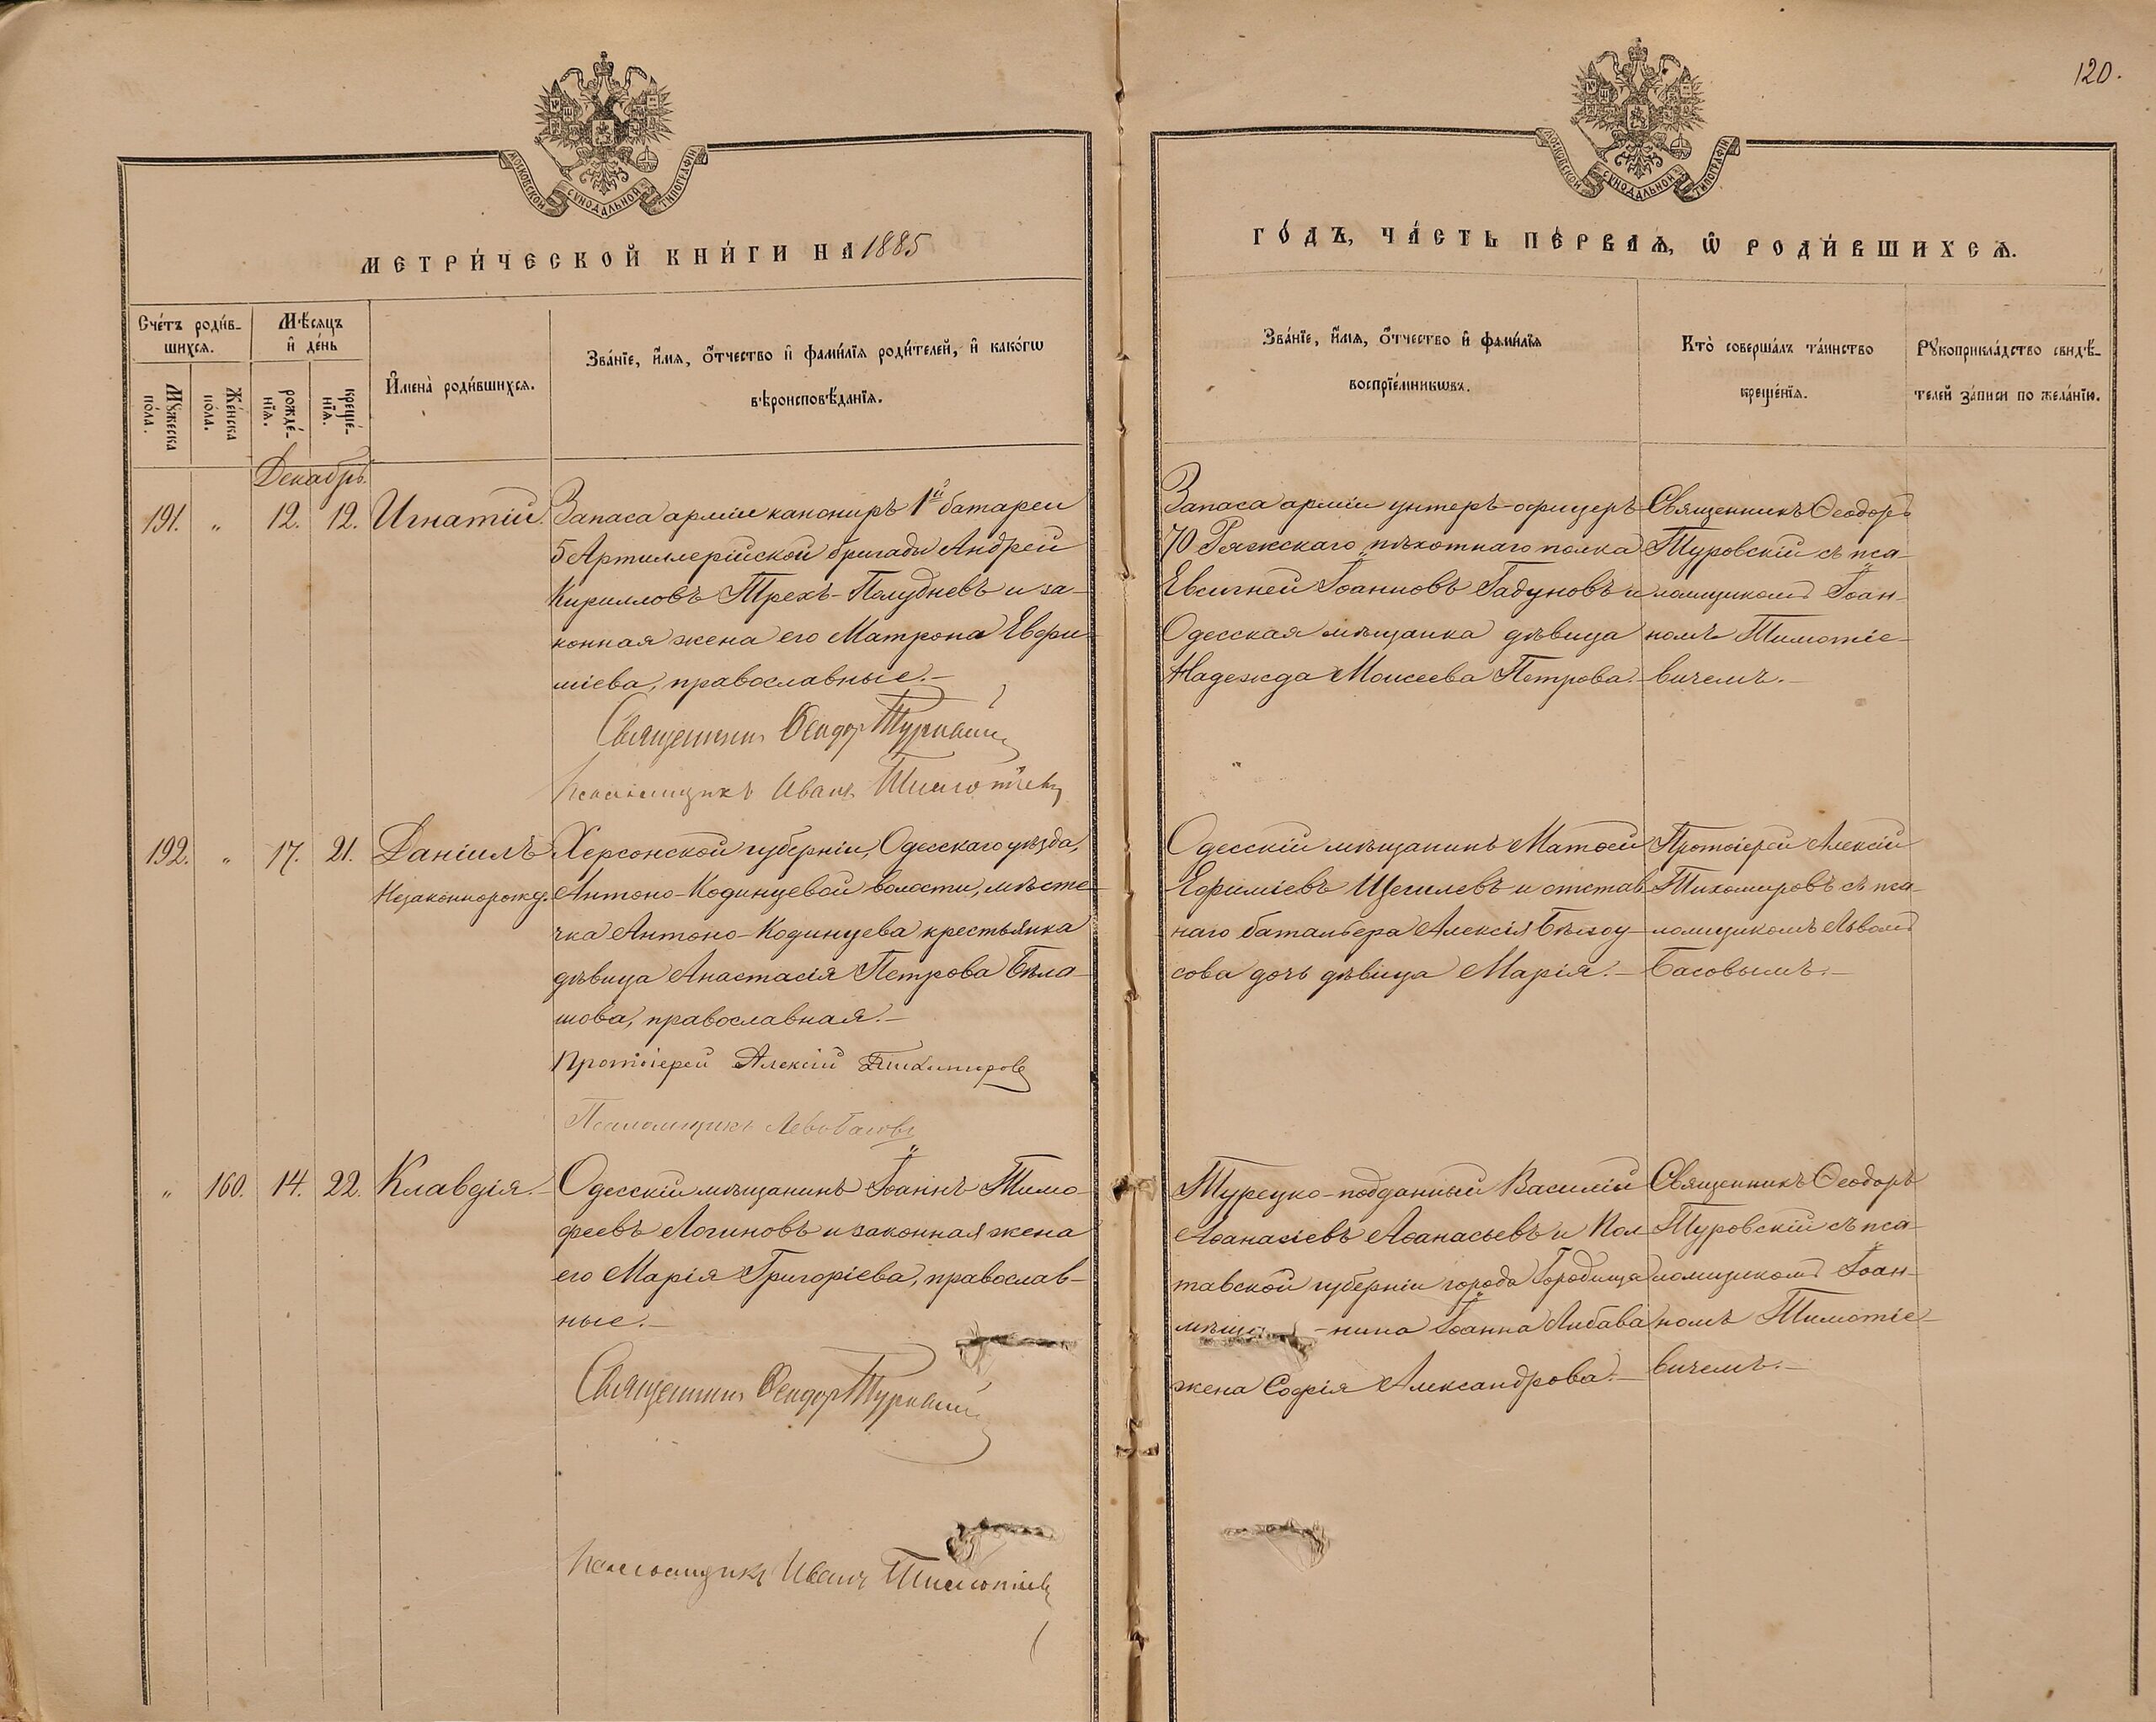 120.
МОСКОВСКОЙ СѴНОДАЛЬНОЙ ТИПОГРАФІИ
МОСКОВСКОЙ СѴНОДАЛЬНОЙ ТИПОГРАФІИ
МЕТРИ́ЧЕСКОЙ КНИ́ГИ НА 1885
ГО́ДЪ, ЧА́СТЬ ПЕ́РВАѦ, Ѡ҆ РОДИ́ВШИХСѦ.
Сче́тъ роди́в-
шихсѧ.
Мꙋ́жеска
по́ла.
Же́нска
по́ла.
Мѣ́сѧцъ
и҆ де́нь
рожде́-
нїѧ.
креще́-
нїѧ.
И҆мена̀ роди́вшихсѧ.
Зва́нїе, и҆́мѧ, ѻ҆́тчество и҆ фами́лїѧ роди́телей, и҆ како́гѡ
вѣроисповѣ́данїѧ.
Зва́нїе, и҆́мѧ, ѻ҆́тчество и҆ фами́лїѧ
воспрїе́мникѡвъ.
Кто̀ соверша́лъ та́инство
креще́нїѧ.
Рꙋкоприкла́дство свидѣ́-
телей за́писи по жела́нїю.
Декабрь.
191. „ 12. 12. Игнатій.
Запаса арміи канониръ 1й батареи
5 Артиллерійской бригады Андрей
Кирилловъ Трехъ-Полудневъ и за-
конная жена его Матрона Евфи-
міева, православные.-
Священникъ Ѳеодоръ Туровскій
Псаломщикъ Иванъ Тимотіевичъ
Запаса арміи унтеръ-офицеръ
70 Ряжскаго пѣхотнаго полка
Евсигней Іоанновъ Гадуновъ и
Одесская мѣщанка дѣвица
Надежда Моисеева Петрова.-
Священникъ Ѳеодоръ
Туровскій съ пса-
ломщикомъ Іоан-
номъ Тимотіе-
вичемъ.-
192. „ 17. 21. Даніилъ
Незаконнорожд.
Херсонской губерніи, Одесскаго уѣзда,
Антоно-Кодинцевой волости, мѣсте-
чка Антоно-Кодинцева крестьянка
дѣвица Анастасія Петрова Бѣла-
шова, православная.-
Протоіерей Алексій Тихомировъ
Псаломщикъ Левъ Басовъ
Одесскій мѣщанинъ Матѳей
Ефиміевъ Щегилевъ и отстав-
наго баталь­ера Алексія Бѣлоу-
сова дочь дѣвица Марія.-
Протоіерей Алексій
Тихомировъ съ пса-
ломщикомъ Львомъ
Басовымъ.-
„ 160. 14. 22. Клавдія.-
Одесскій мѣщанинъ Іоаннъ Тимо-
феевъ Логиновъ и законная жена
его Марія Григоріева, православ-
ные.-
Священникъ Ѳеодоръ Туровскій
Псаломщикъ Иванъ Тимотіевичъ
Турецко-подданный Василій
Аѳанасіевъ Аѳанасьевъ и Пол-
тавской губерніи города Городища
мѣща-нина Іоанна Либава
жена Софія Александрова.-
Священникъ Ѳеодоръ
Туровскій съ пса-
ломщикомъ Іоан-
номъ Тимотіе-
вичемъ.-